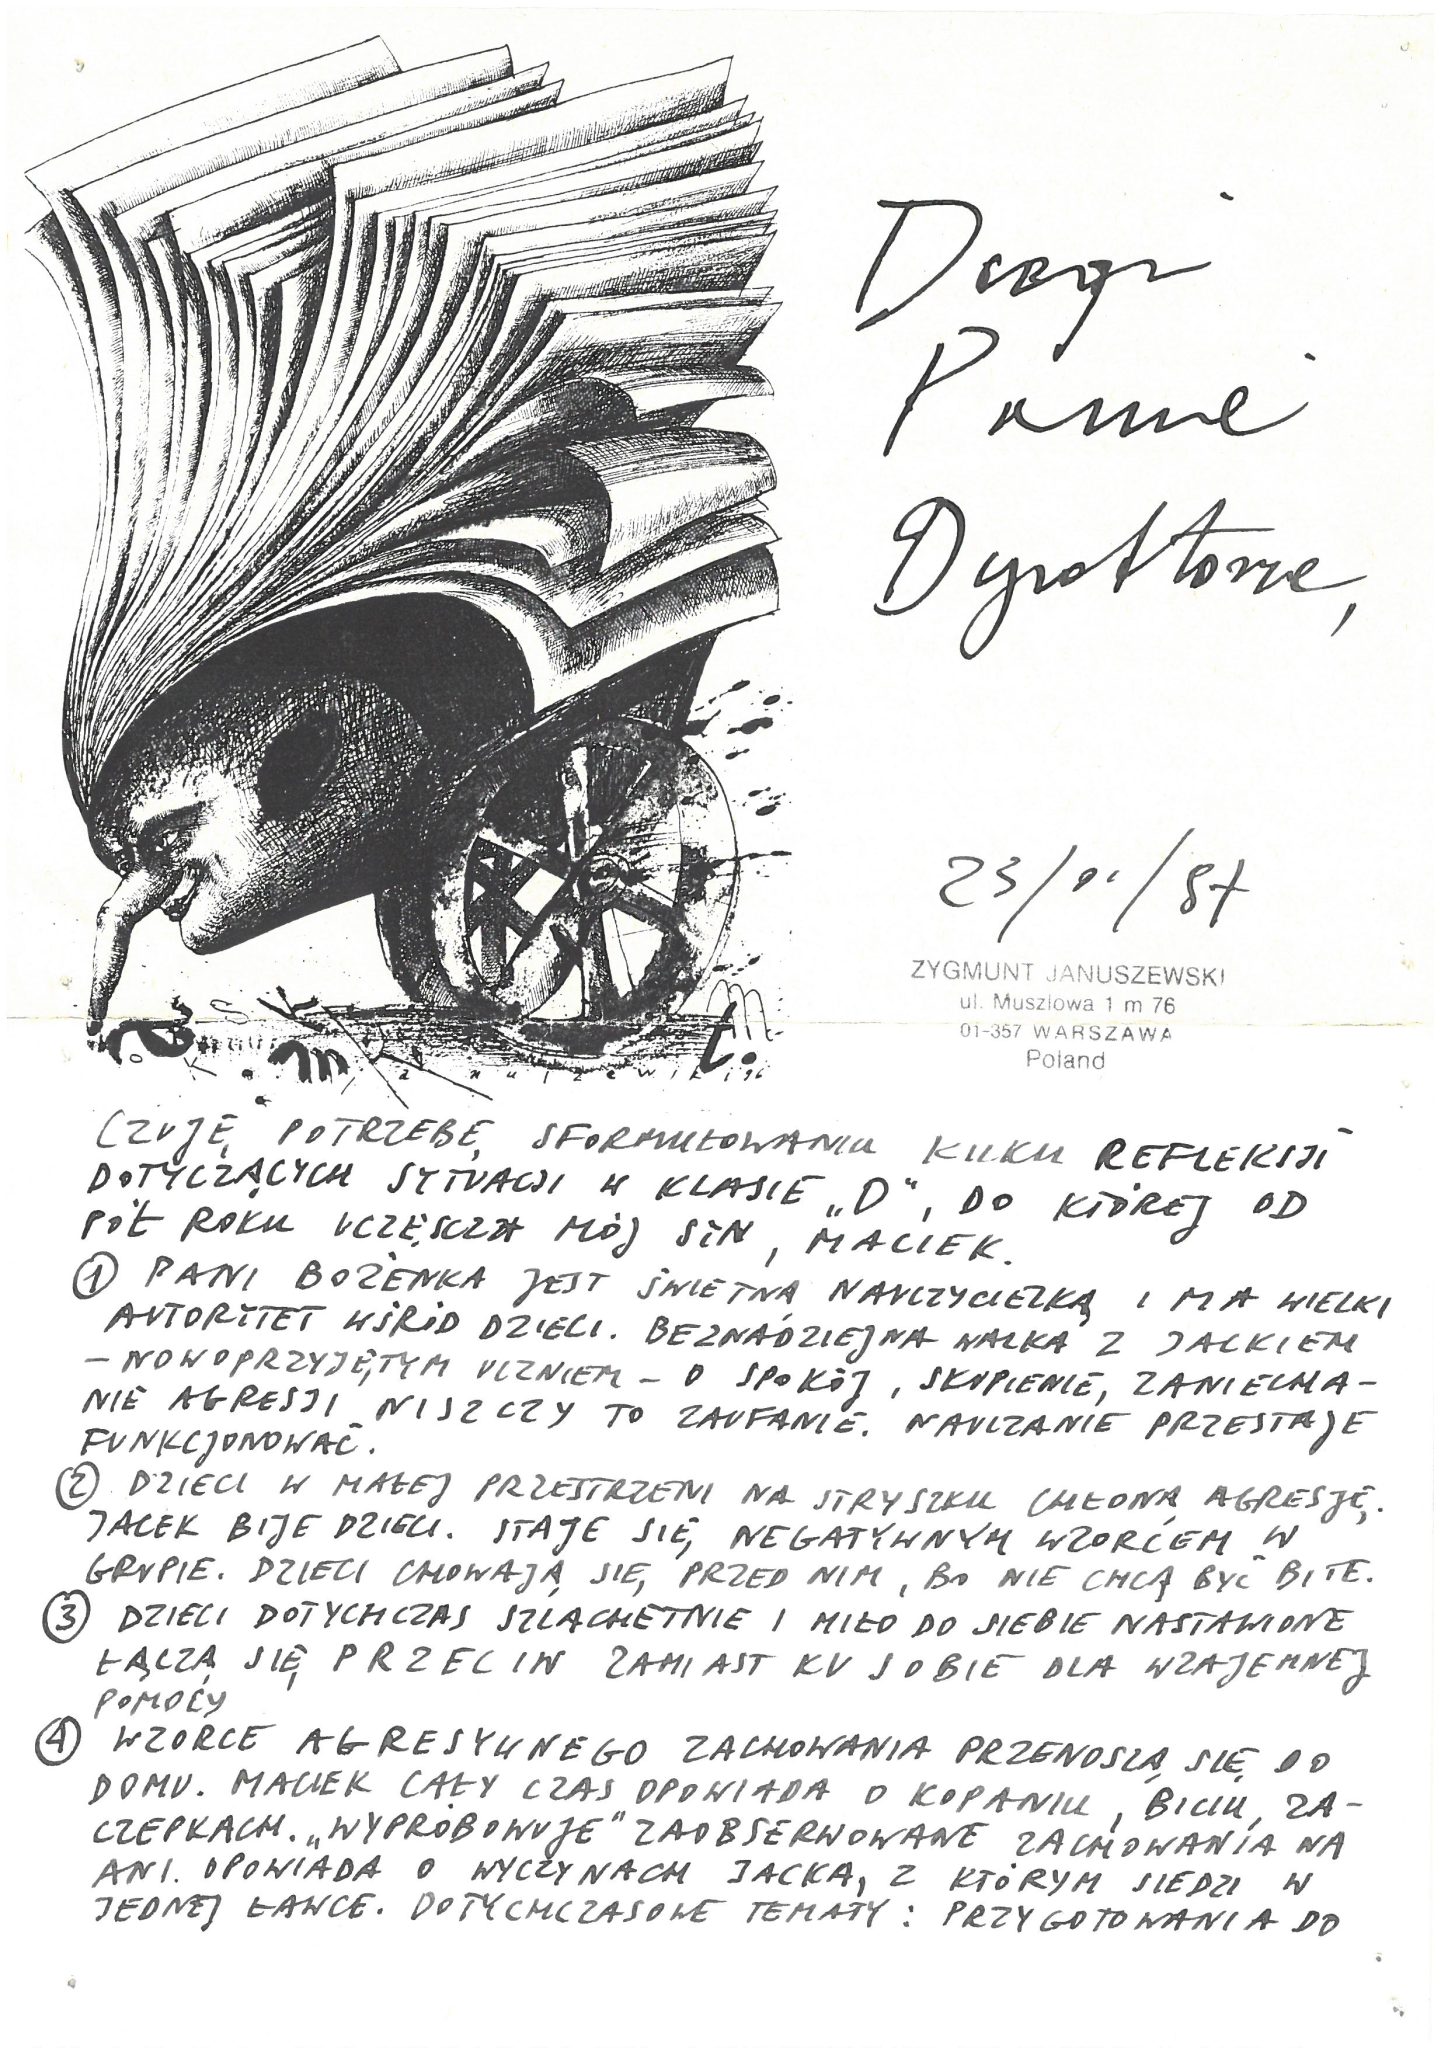 Drogi
Panie
Dyrektorze,
23/01/97
ZYGMUNT JANUSZEWSKI
ul. Muszlowa 1 m 76
01-357 WARSZAWA
Poland
CZUJĘ POTRZEBĘ SFORMUŁOWANIA KILKU REFLEKSJI
DOTYCZĄCYCH SYTUACJI W KLASIE „D“, DO KTÓREJ OD
PÓŁ ROKU UCZĘSZCZA MÓJ SYN, MACIEK.
① PANI BOŻENKA JEST ŚWIETNĄ NAUCZYCIELKĄ I MA WIELKI
AUTORYTET WŚRÓD DZIECI. BEZNADZIEJNA WALKA Z JACKIEM
– NOWOPRZYJĘTYM UCZNIEM – O SPOKÓJ, SKUPIENIE, ZANIECHA-
NIE AGRESJI NISZCZY TO ZAUFANIE. NAUCZANIE PRZESTAJE
FUNKCJONOWAĆ.
② DZIECI W MAŁEJ PRZESTRZENI NA STRYSZKU CHŁONĄ AGRESJĘ.
JACEK BIJE DZIECI. STAJE SIĘ NEGATYWNYM WZORCEM W
GRUPIE. DZIECI CHOWAJĄ SIĘ PRZED NIM, BO NIE CHCĄ BYĆ BITE.
③ DZIECI DOTYCHCZAS SZLACHETNIE I MIŁO DO SIEBIE NASTAWIONE
ŁĄCZĄ SIĘ PRZECIW ZAMIAST KU SOBIE DLA WZAJEMNEJ
POMOCY
④ WZORCE AGRESYWNEGO ZACHOWANIA PRZENOSZĄ SIĘ DO
DOMU. MACIEK CAŁY CZAS OPOWIADA O KOPANIU, BICIU, ZA-
CZEPKACH. „WYPRÓBOWUJE“ ZAOBSERWOWANE ZACHOWANIA NA
ANI. OPOWIADA O WYCZYNACH JACKA, Z KTÓRYM SIEDZI W
JEDNEJ ŁAWCE. DOTYCHCZASOWE TEMATY: PRZYGOTOWANIA DO